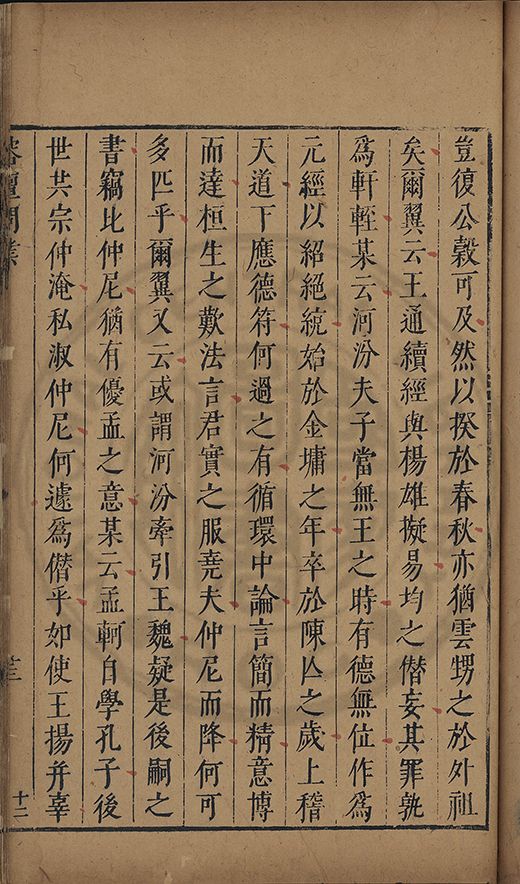 豈復公穀可及然以揆於春秋亦猶雲甥之於外祖
矣爾翼云王通續經與楊雄擬易均之僣妄其罪孰
為軒輊某云河汾夫子當無王之時有德無位作為
元經以紹絕統始於金墉之年卒於陳亾之歲上稽
天道下應德符何過之有循環中論言簡而精意博
而達桓生之歎法言君實之服堯夫仲尼而降何可
多匹乎爾翼又云或謂河汾牽引王魏疑是後嗣之
書竊比仲尼猶有優孟之意某云孟軻自學孔子後
世共宗仲淹私淑仲尼何遽為僣乎如使王揚并辜
十二